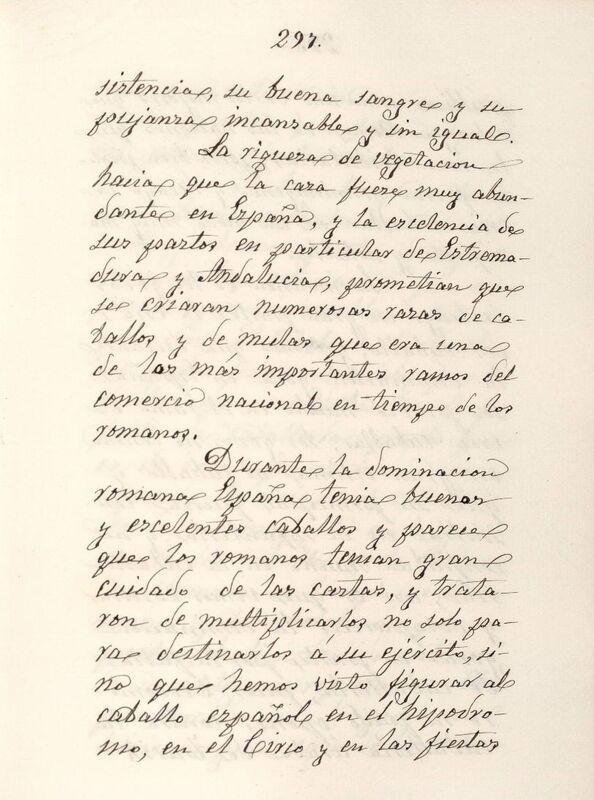 297.
sistencia, su buena sangre y su
pujanza incanzable y sin igual.
La riqueza de vegetacion
hacia que la caza fuese muy abun-
dante en España, y la escelencia de
sus pastos en particular de Estrema-
dura y Andalucia, prometian que
se criaran numerosas razas de ca-
ballos y de mulas que era una
de los más importantes ramos del
comercio nacional en tiempo de los
romanos.
Durante la dominacion
romana España tenia buenos
y escelentes caballos y parece
que los romanos tenian gran
cuidado de las castas, y trata-
ron de multiplicarlos no solo pa-
ra destinarlos á su ejército, si-
no que hemos visto figurar al
caballo español en el hipodro-
mo, en el Circo y en las fiestas